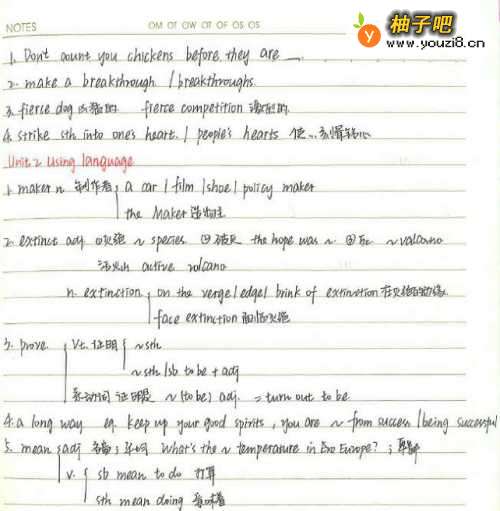 NOTES
OM OT OW OT OF OS OS
柚子吧
www.youzi8.cn
1. Don't count you chickens before they are __.
2. make a breakthrough / breakthroughs.
3. fierce dog 凶猛的 fierce competition 激烈的
4. strike sth into one's heart / people's hearts 使…刻骨铭心
Unit 2 Using language
1. maker n 制作者; a car / film / shoe / policy maker
the Maker 造物主
2. extinct adj ① 灭绝 ~ species ② 破灭 the hope was ~ ③ 死 ~ valcano
活火山 active volcano
n. extinction, on the verge / edge / brink of extinction 在灭绝的边缘
face extinction 面临灭绝
3. prove vt. 证明 ~ sth
~ sth / sb to be + adj
系动词 证明是 ~ (to be) adj. = turn out to be
4. a long way eg. keep up your good spirits, you are ~ from success / being successful
5. mean adj What's the ~ temperature in Europe?
v. sb mean to do 打算
sth mean doing 意味着